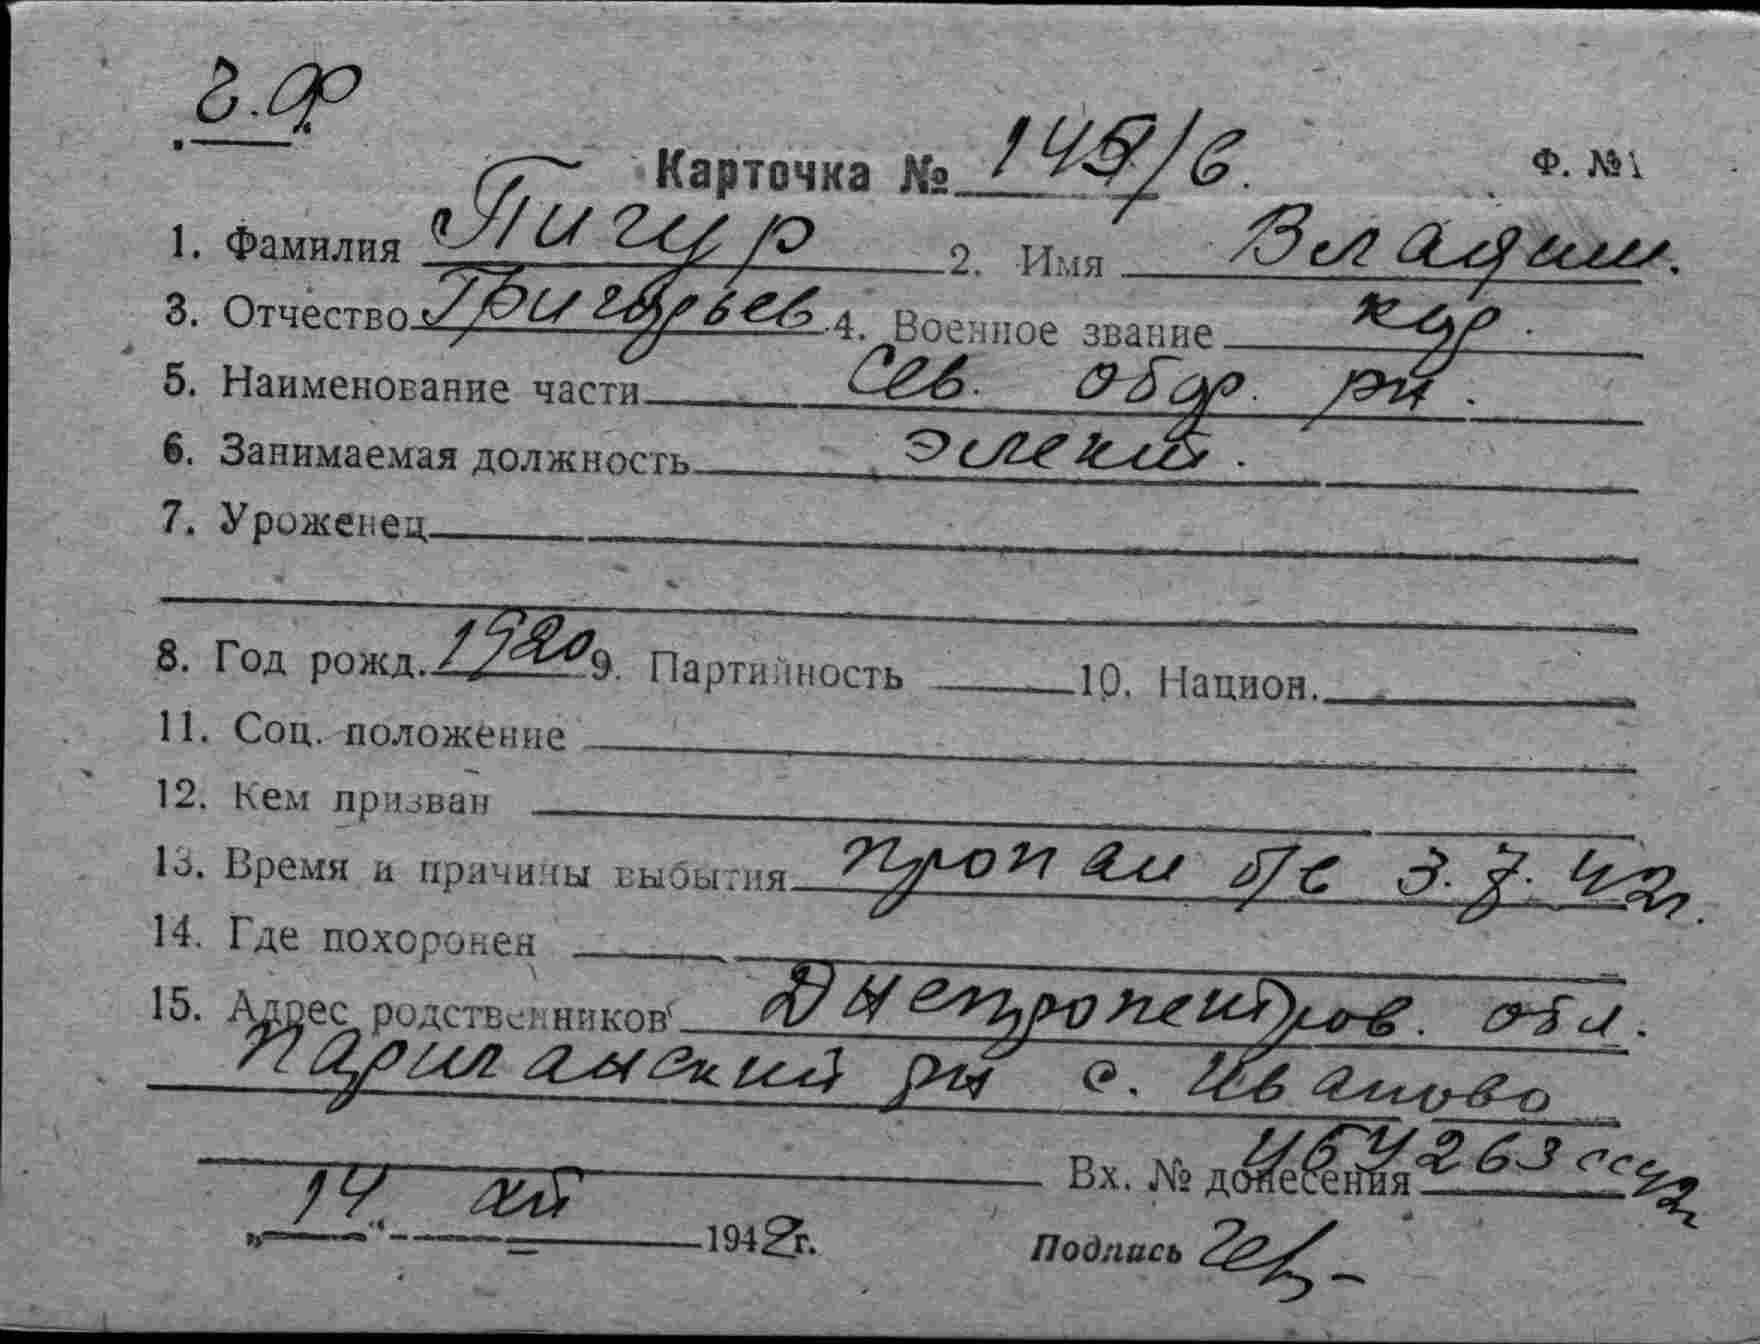 Ч.Ф
Карточка № 145/в. Ф. №1
1. Фамилия Пигур 2. Имя Владим.
3. Отчество Григорьев 4. Военное звание кр.
5. Наименование части Сев. обор. рн.
6. Занимаемая должность электр.
7. Уроженец
8. Год рожд. 1920 9. Партийность 10. Национ.
11. Соц. положение
12. Кем призван
13. Время и причины выбытия пропал б/в 3.7.42г.
14. Где похоронен
15. Адрес родственников Днепропетров. обл.
Царичанский рн с. Иваново
Вх. № донесения 263сс42
„14“ 1942г. Подпись